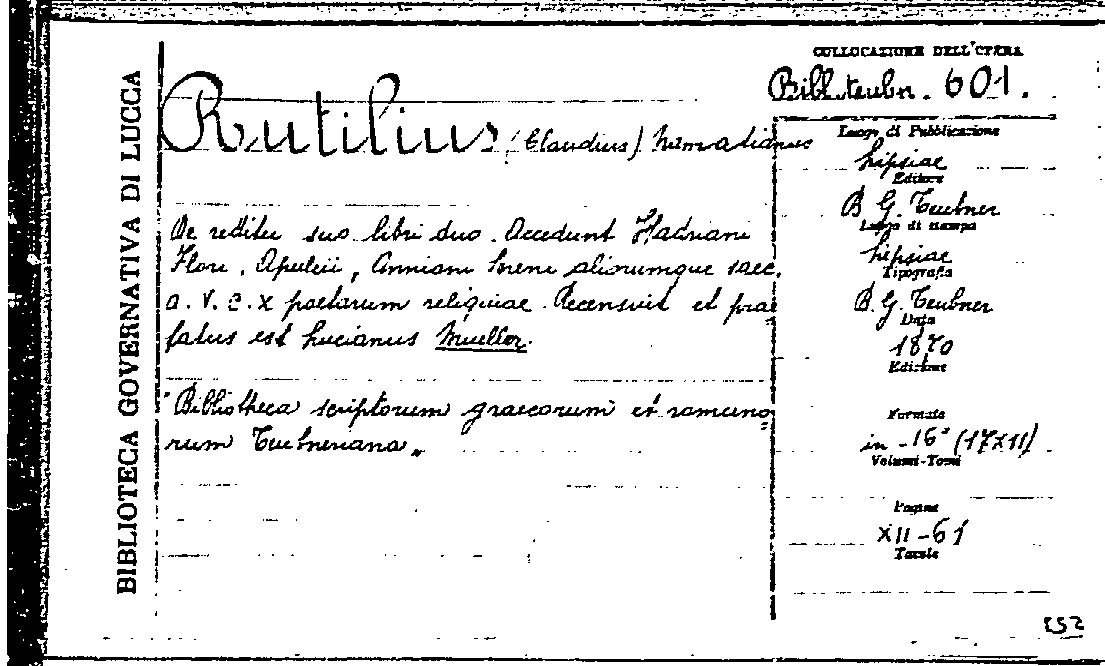 BIBLIOTECA GOVERNATIVA DI LUCCA
COLLOCAZIONE DELL'OPERA
Bibl. teubn. 601.
Rutilius (Claudius) Namatianus
De reditu suo libri duo. Accedunt Hadriani
Flori, Apuleii, Anniani Sereni aliorumque saec.
a. V. C. X poetarum reliquiae. Recensuit et prae
fatus est Lucianus Mueller.
"Bibliotheca scriptorum graecorum et romano
rum Teubneriana„
Luogo di Pubblicazione
Lipsiae
Editore
B. G. Teubner
Luogo di stampa
Lipsiae
Tipografia
B. G. Teubner
Data
1870
Edizione
Formato
in-16° (17X11)
Volumi-Tomi
Pagine
XII-61
Tavole